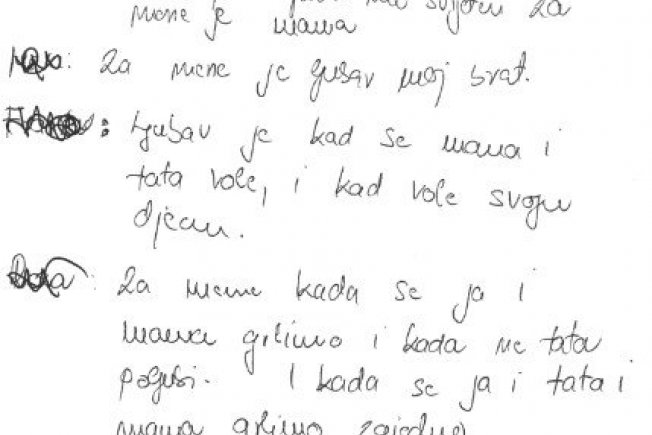 svijetu za
mene je mama
: Za mene je ljubav moj brat.
: Ljubav je kad se mama i
tata vole, i kad vole svoju
djecu.
: Za mene kada se ja i
mama grlimo i kada me tata
poljubi. I kada se ja i tata i
mama grlimo zajedno